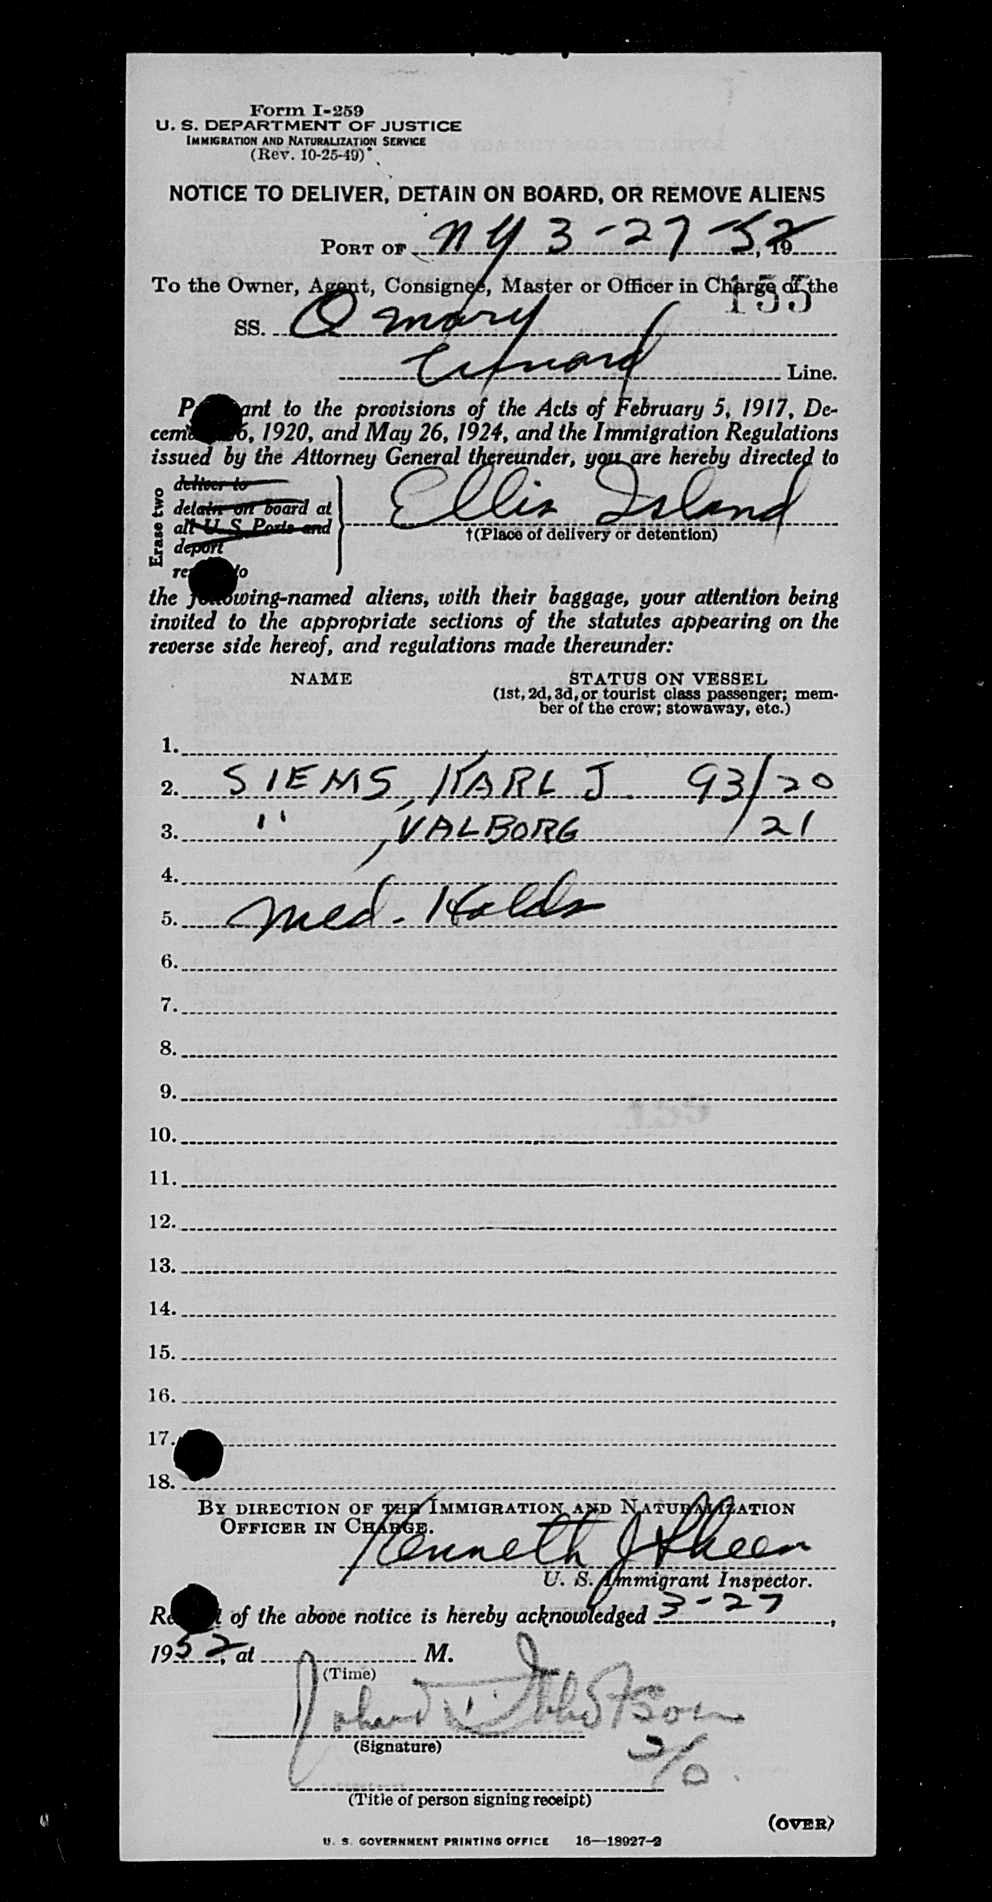 Form I-259
U. S. DEPARTMENT OF JUSTICE
IMMIGRATION AND NATURALIZATION SERVICE
(Rev. 10-25-49)
NOTICE TO DELIVER, DETAIN ON BOARD, OR REMOVE ALIENS
PORT OF NY 3-27-52, 19
To the Owner, Agent, Consignee, Master or Officer in Charge of the
155
SS. Q Mary
Cunard Line.
P ant to the provisions of the Acts of February 5, 1917, De-
cem 6, 1920, and May 26, 1924, and the Immigration Regulations
issued by the Attorney General thereunder, you are hereby directed to
Erase two
deliver to
detain on board at
all U. S. Ports and
deport
re o
Ellis Island
†(Place of delivery or detention)
the following-named aliens, with their baggage, your attention being
invited to the appropriate sections of the statutes appearing on the
reverse side hereof, and regulations made thereunder:
NAME STATUS ON VESSEL
(1st, 2d, 3d, or tourist class passenger; mem-
ber of the crew; stowaway, etc.)
1.
2. SIEMS, KARL J. 93/20
3. " , VALBORG / 21
4.
5. Med. Holds
6.
7.
8.
9.
10.
11.
12.
13.
14.
15.
16.
17.
18.
BY DIRECTION OF THE IMMIGRATION AND NATURALIZATION
OFFICER IN CHARGE.
Kenneth J Skeen
U. S. Immigrant Inspector.
Re t of the above notice is hereby acknowledged 3-27,
1952, at M.
(Time)
(Signature)
2/O.
(Title of person signing receipt)
(OVER)
U. S. GOVERNMENT PRINTING OFFICE 16—18927-2